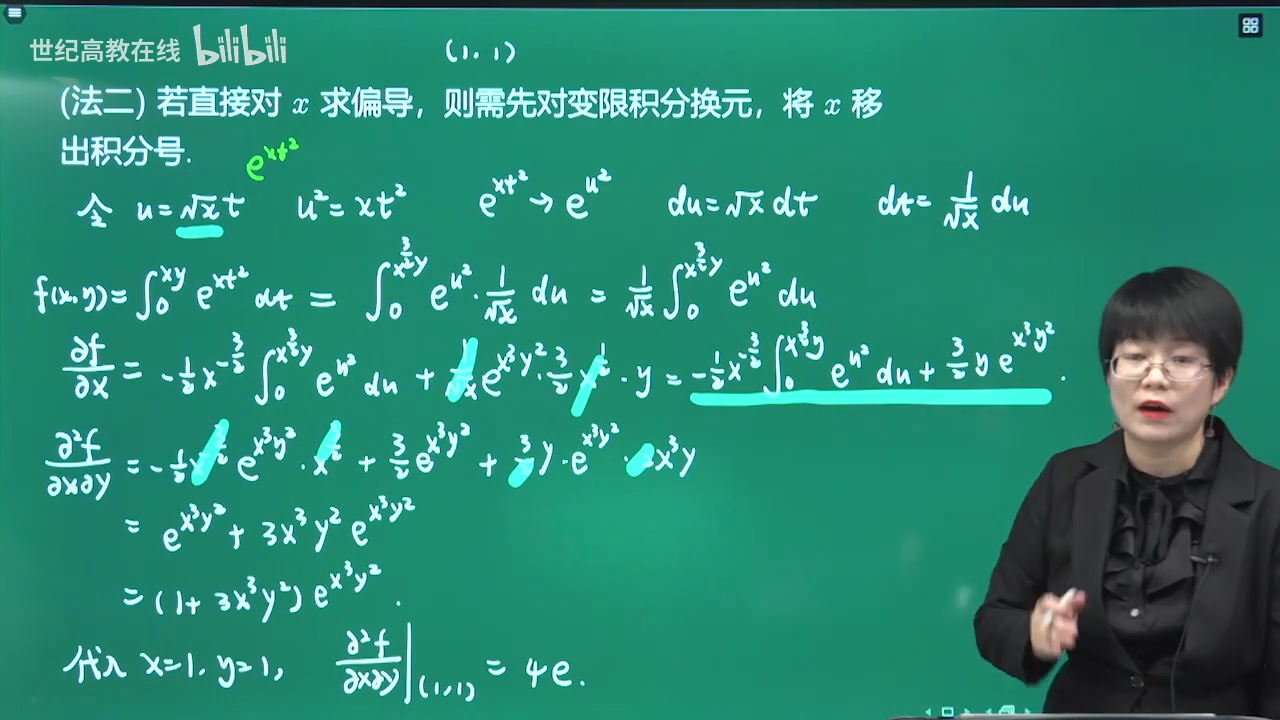 世纪高教在线 bilibili
(1, 1)
(法二) 若直接对 x 求偏导，则需先对变限积分换元，将 x 移
出积分号.
e^{xt^2}
令 u=√x t  u^2=xt^2  e^{xt^2}→e^{u^2}  du=√x dt  dt=\frac{1}{√x} du
f(x,y)=∫_0^{xy} e^{xt^2} dt = ∫_0^{x^{\frac{3}{2}}y} e^{u^2}·\frac{1}{√x} du = \frac{1}{√x} ∫_0^{x^{\frac{3}{2}}y} e^{u^2} du
\frac{∂f}{∂x} = -\frac{1}{2}x^{-\frac{3}{2}} ∫_0^{x^{\frac{3}{2}}y} e^{u^2} du + \frac{1}{√x} e^{x^3y^2}·\frac{3}{2} x^{\frac{1}{2}}·y = -\frac{1}{2}x^{-\frac{3}{2}} ∫_0^{x^{\frac{3}{2}}y} e^{u^2} du + \frac{3}{2} y e^{x^3y^2}.
\frac{∂^2f}{∂x∂y} = -\frac{1}{2}x^{-\frac{3}{2}} e^{x^3y^2}·x^{\frac{3}{2}} + \frac{3}{2} e^{x^3y^2} + \frac{3}{2} y·e^{x^3y^2}·2x^3y
= e^{x^3y^2} + 3x^3y^2 e^{x^3y^2}
= (1+3x^3y^2) e^{x^3y^2}.
代入 x=1, y=1,  \frac{∂^2f}{∂x∂y}|_{(1,1)} = 4e.